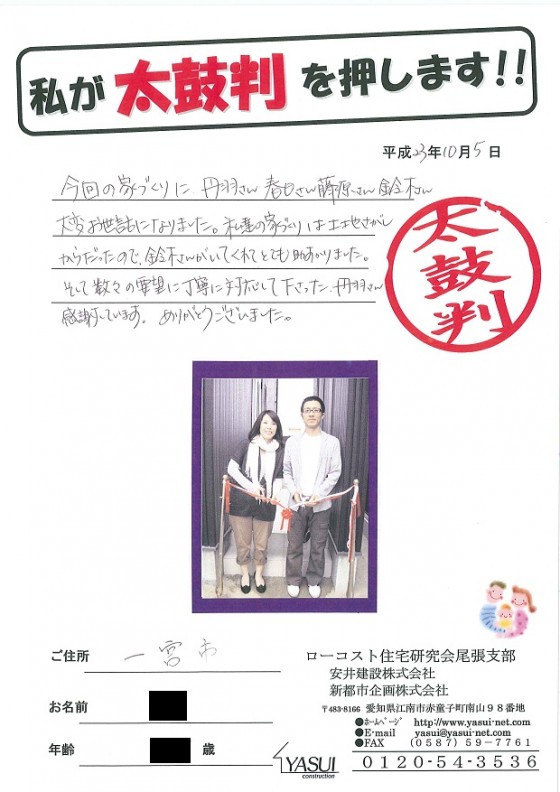 私が太鼓判を押します!!
平成23年10月5日
今回の家づくりに 丹羽さん 春日さん 藤原さん 鈴木さん
大変お世話になりました。私達の家づくりは土地さがし
からだったので、鈴木さんがいてくれてとても助かりました。
そして数々の要望に丁寧に対応して下さった、丹羽さん
感謝しています。ありがとうございました。
太鼓判
ご住所 一宮市
お名前
年齢 歳
YASUI
construction
ローコスト住宅研究会尾張支部
安井建設株式会社
新都市企画株式会社
〒483-8166 愛知県江南市赤童子町南山98番地
●ホームページ http://www.yasui-net.com
●E-mail yasui@yasui-net.com
●FAX (0587)59-7761
0120-54-3536